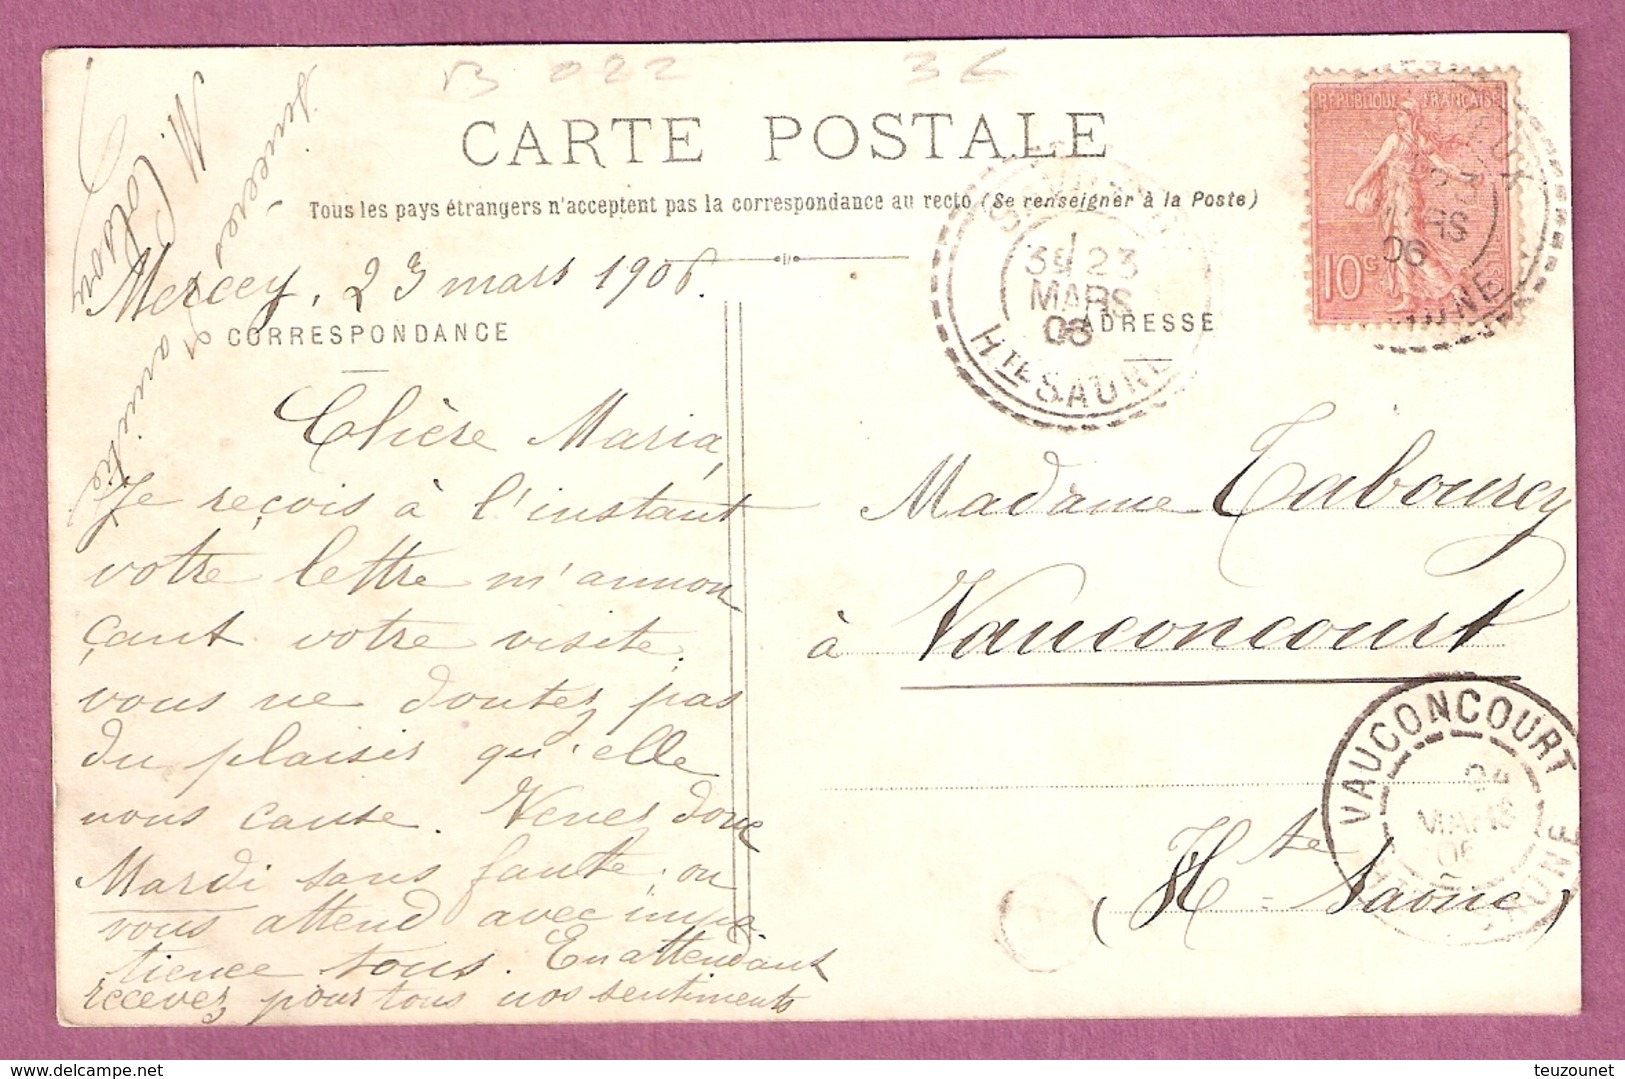 B 022
3€
CARTE POSTALE
Tous les pays étrangers n'acceptent pas la correspondance au recto (Se renseigner à la Poste)
Mercey, 23 mars 1906.
CORRESPONDANCE
Chère Maria,
Je reçois à l'instant
votre lettre m'annon
çant votre visite.
vous ne doutez pas
du plaisir qu'elle
nous cause. Venez donc
Mardi sans faute, on
vous attend avec impa-
tience tous. En attendant
recevez pour tous nos sentiments
sincères
d'amitié
M. Colson
ADRESSE
RÉPUBLIQUE FRANÇAISE
10c
MARS
06
3E 23
MARS
06
Hte SAONE
Madame Tabourey
à Vauconcourt
(Hte Saone)
VAUCONCOURT
24
MARS
06
SAONE
teuzounet